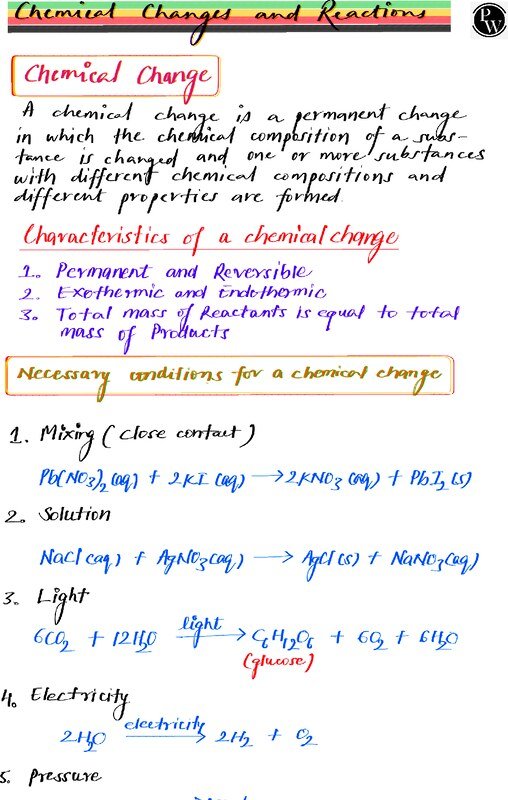 Chemical Changes and Reactions
PW
Chemical Change
A chemical change is a permanent change
in which the chemical composition of a subs-
tance is changed and one or more substances
with different chemical compositions and
different properties are formed.
Characteristics of a chemical change
1. Permanent and Reversible
2. Exothermic and Endothermic
3. Total mass of Reactants is equal to total
mass of Products
Necessary conditions for a chemical change
1. Mixing (close contact)
Pb(NO₃)₂ (aq) + 2KI (aq) → 2KNO₃ (aq) + PbI₂ (s)
2. Solution
NaCl (aq) + AgNO₃(aq) → AgCl (s) + NaNO₃(aq)
3. Light
light
6CO₂ + 12H₂O → C₆H₁₂O₆ + 6O₂ + 6H₂O
(glucose)
4. Electricity
electricity
2H₂O → 2H₂ + O₂
5. Pressure